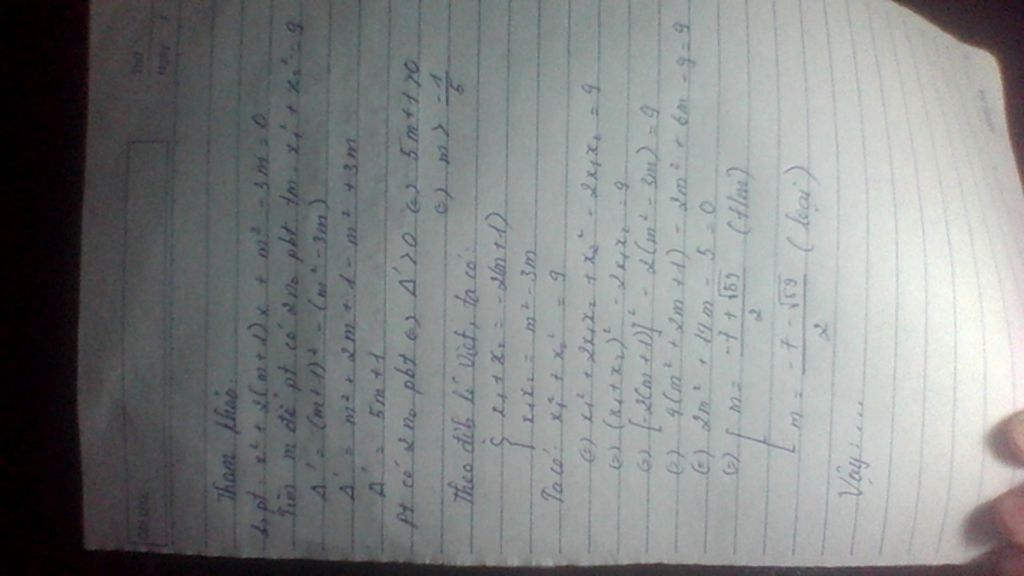 Tham khảo.
pt: x² + 2(m+1)x + m² - 3m = 0
Tìm m để pt có 2 no pbt tm x₁² + x₂² = 9
Δ' = (m+1)² - (m² - 3m)
Δ' = m² + 2m + 1 - m² + 3m
Δ' = 5m + 1
Pt có 2 no pbt ⇔ Δ' > 0 ⇔ 5m + 1 > 0
⇔ m > -1/5
Theo định lí Viét, ta có:
{ x₁ + x₂ = -2(m+1)
x₁x₂ = m² - 3m
Ta có: x₁² + x₂² = 9
⇔ x₁² + 2x₁x₂ + x₂² - 2x₁x₂ = 9
⇔ (x₁ + x₂)² - 2x₁x₂ = 9
⇔ [-2(m+1)]² - 2(m² - 3m) = 9
⇔ 4(m² + 2m + 1) - 2m² + 6m - 9 = 9
⇔ 2m² + 14m - 5 = 0
⇔ [ m = (-7 + √59)/2 (t/m)
m = (-7 - √59)/2 (loại)
Vậy.....